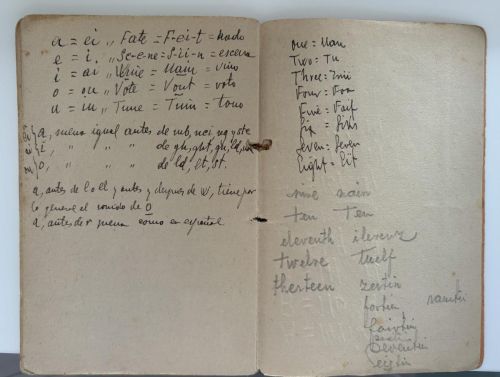 a = ei „ Fate = F-ei-t = hado
e = i. „ Sc-e-ne = S-ii-n = escena
i = ai „ Wine = Uain = vino
o = ou „ Vote = Vout = voto
u = iu „ Tune = Tiun = tono
ei } a, suena igual antes de mb, nci ng y ste
ai } i, „ „ „ de gh, ght, gn, ld, nd
ou } o, „ „ „ de ld, lt, st.
a, antes de l o ll y antes y despues de w, tiene por
lo general el sonido de o
a, antes de r suena como en español
One = Uan
Two = Tu
Three = Zrii
Four = Foa
Five = Faif
Six = Siks
Seven = Seven
Eight = Eit
nine nain
ten Ten
eleventh ilevenz
twelve tuelf
therteen zertin
fortin